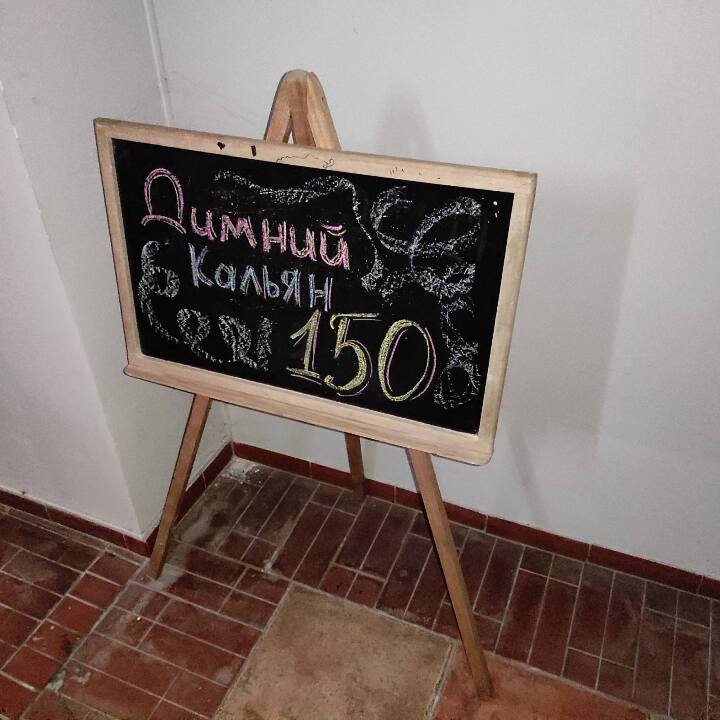 Димний
Кальян
150